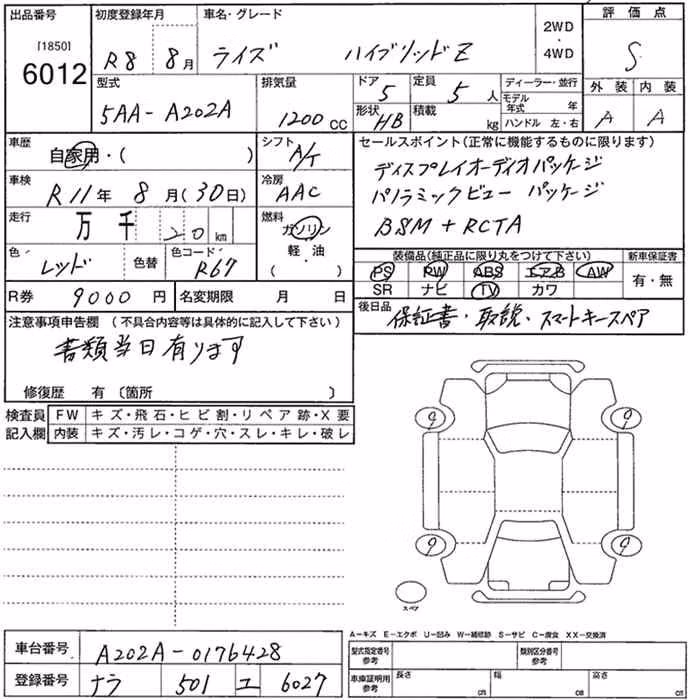 出品番号
[1850]
6012
初度登録年月
R8 8月
車名・グレード
ライズ ハイブリッドZ
2WD
・
4WD
評価点
S
外装 内装
A A
型式
5AA-A202A
排気量
1200 CC
ドア
5
定員
5 人
形状
HB
積載
kg
ディーラー・並行
モデル年式 年
ハンドル 左・右
車歴
自家用・( )
シフト
A/T
車検
R11年 8月(30日)
冷房
AAC
走行
万 千 20 km
燃料
ガソリン
・
軽・油
( )
色
レッド
色替
色コード
R67
R券 9000円
名変期限 月 日
セールスポイント(正常に機能するものに限ります)
ディスプレイオーディオパッケージ
パノラミックビュー パッケージ
BSM + RCTA
装備品(純正品に限り丸をつけて下さい)
PS PW ABS エアB AW
SR ナビ TV カワ
新車保証書
有・無
後日品
保証書・取説・スマートキースペア
注意事項申告欄 (不具合内容等は具体的に記入して下さい)
書類当日有ります
修復歴 有 〔箇所 〕
検査員記入欄
FW キズ・飛石・ヒビ割・リペア跡・X要
内装 キズ・汚レ・コゲ・穴・スレ・キレ・破レ
9 9
9 9
スペア
A-キズ E-エクボ U-凹み W-補修跡 S-サビ C-腐食 XX-交換済
車台番号 A202A-0176428
登録番号 ナラ 501 ユ 6027
型式指定番号 参考
類別区分番号 参考
車庫証明用 参考
長さ cm 幅 cm 高さ cm